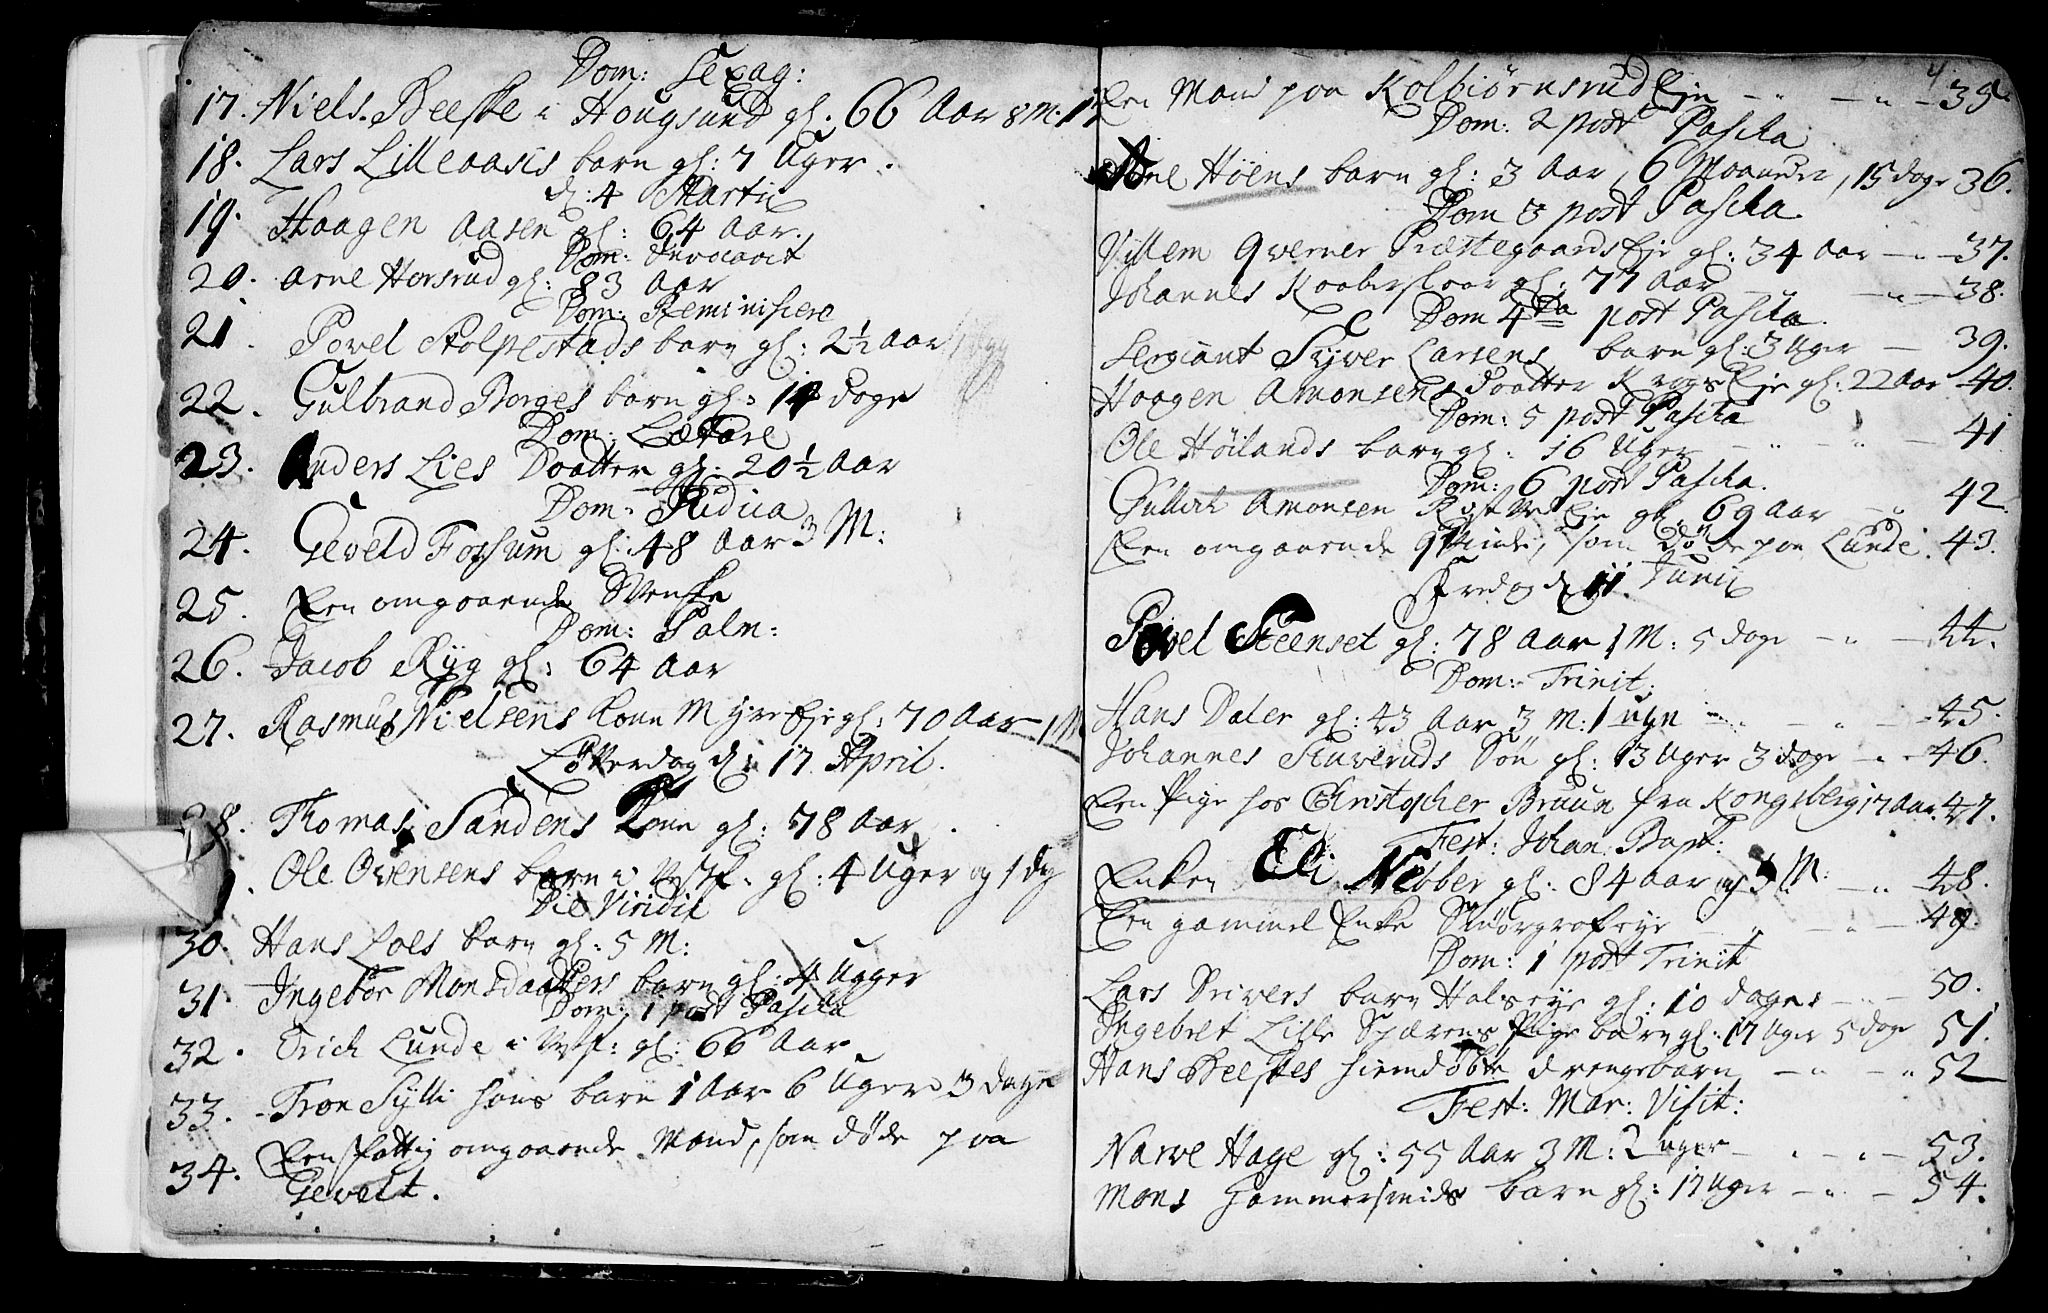 Dom: Sexag:
17. Niels Beeske i Hougsund gl. 66 Aar 8 M. 1
18. Lars Lilleaasis barn gl: 7 Uger.
d: 4 Martii
19. Haagen Aasen gl: 64 Aar.
Dom: Invocavit
20. Arne Horsrud gl: 83 Aar
Dom: Reminiscere
21. Povel Stolpestads barn gl: 2½ Aar
22. Gulbrand Borges barn gl: 14 dage
Dom: Lætare
23. Anders Lies Daatter gl: 20½ Aar
Dom: Judica
24. Geveld Fossum gl: 48 Aar 3 M:
25. Een omgaaende Svenske
Dom: Palm:
26. Jacob Ryg gl: 64 Aar
27. Rasmus Nielsens kone Myre Eje gl: 70 Aar 1 M
Løverdag d: 17 April.
28. Thomas Sandens kone gl: 78 Aar.
Ole Ovensens barn i gl: 4 Uger og 1 dg
Die Viridi
30. Hans Loes barn gl: 5 M:
31 Ingebor Monsdaatters barn gl: 4 Ugger
Dom: 1 post Pascha
32. Erich Lunde i gl: 66 Aar
33. Tron Sylli hans barn 1 Aar 6 Uger 3 dage
34. Een fattig omgaaende Mand, som døde paa
Gevelt.
4
Een Mand paa Kolbiørnsrud Eje 35.
Dom: 2 post Pascha
Høens barn gl: 3 Aar, 6 Maaneder, 15 dage 36.
Dom 3 post Pascha.
Villem Qverner Præstegaards Eje gl: 34 Aar 37.
Johannes gl: 77 Aar 38.
Dom 4ta post Pascha.
Sergiant Syver Larsens barn gl: 3 Uger 39.
Haagen Amonsens daatter Krogs Eje gl: 22 Aar 40.
Dom: 5 post Pascha
Ole Høilands barn gl: 16 Uger 41
Dom: 6 post Pascha.
Gullich Amonsen Eje gl: 69 Aar 42.
Een omgaaende Qvinde, som døde paa Lunde. 43.
Fredag d. 11. Junii
Povel Steenset gl: 78 Aar 1 M: 5 dage 44.
Dom: Trinit:
Hans Daler gl: 43 Aar 3 M: 1 uge 45.
Johannes Stuveruds Søn gl: 13 Uger 3 dage 46.
Een Pige hos Christopher Bruun fra Kongsberg 17 Aar. 47.
Fest: Johan: Bapt:
Enken Eli Nebber gl: 84 Aar og 3 M: 48.
Een gammel Enke 49.
Dom: 1 post Trinit
Lars Drivers barn gl: 10 dages 50.
Ingebret Lille Spærens Pige barn gl: 17 Uger 5 dage 51.
Hans Beeskes hiemdøbte drengebarn 52
Fest: Mar: Visit:
Narve Hage gl: 55 Aar 3 M: 2 uger 53.
Mons Hammersmids barn gl: 17 Uger 54.